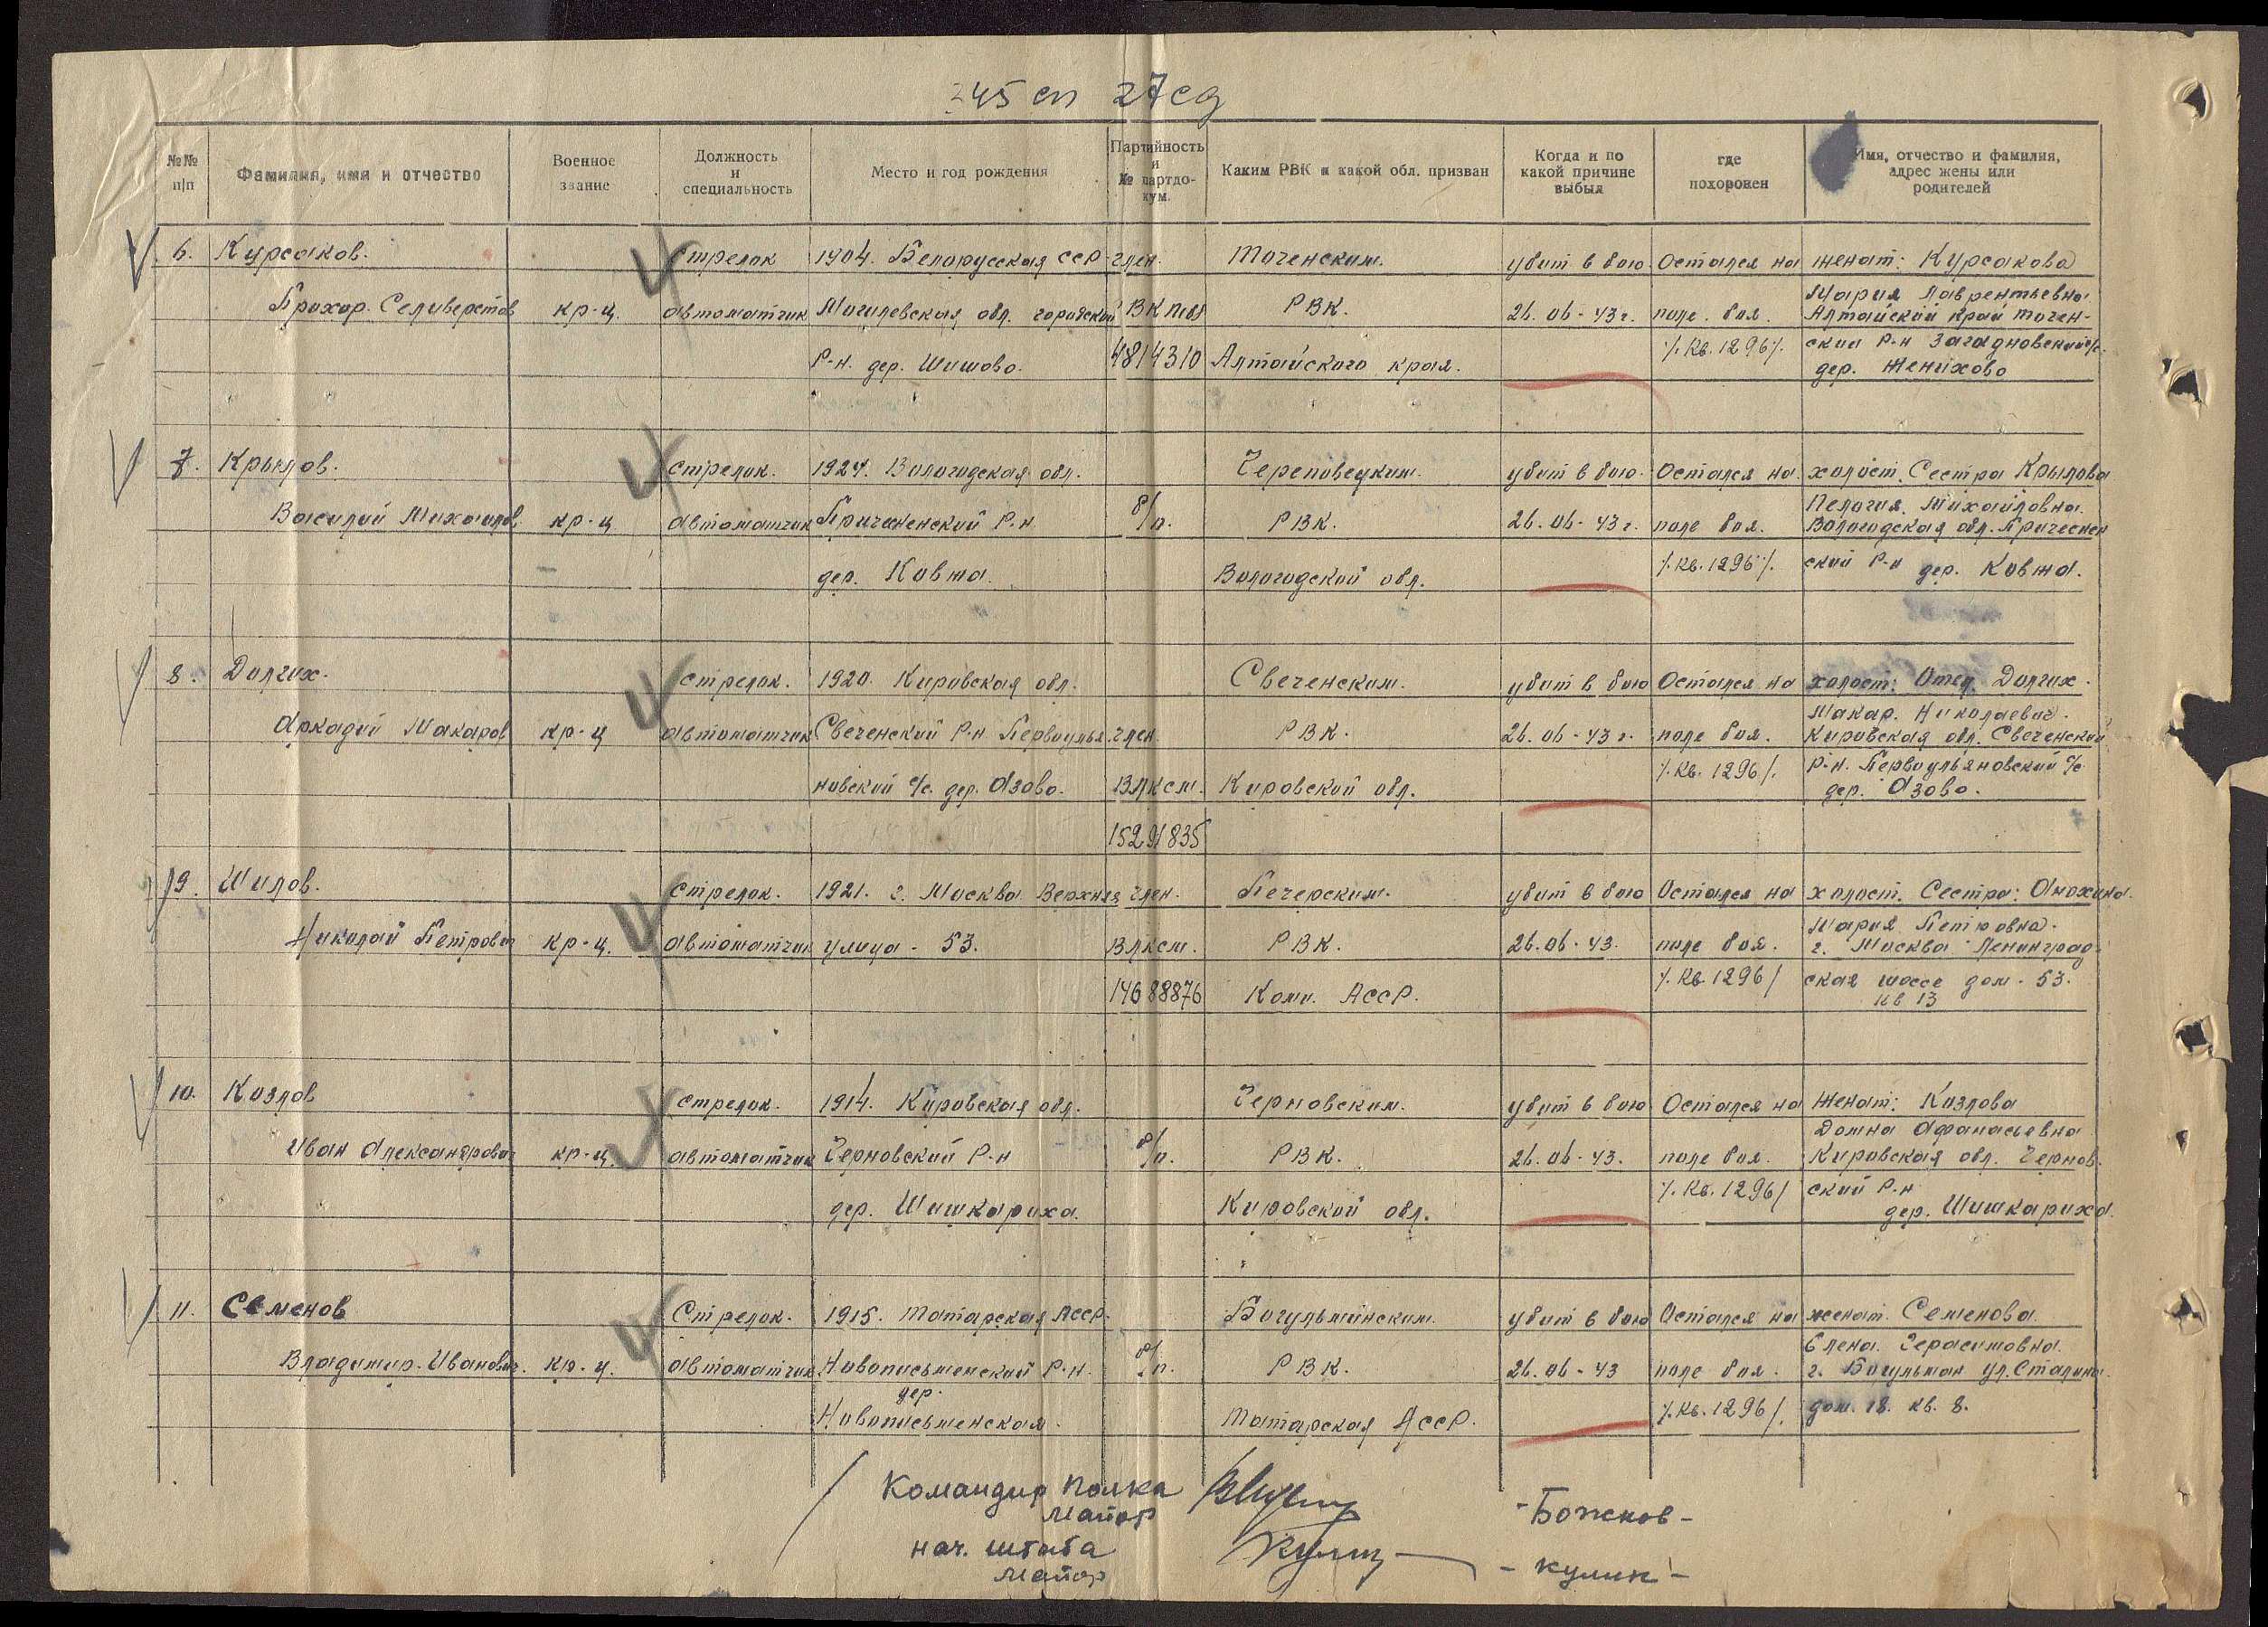 345 сп 27 сд
№№ п/п
Фамилия, имя и отчество
Военное звание
Должность и специальность
Место и год рождения
Партийность и № партдокум.
Каким РВК и какой обл. призван
Когда и по какой причине выбыл
где похоронен
Имя, отчество и фамилия, адрес жены или родителей
6. Курсаков. стрелок 1904. Белорусская ССР член. Тогенским. убит в бою Остался на женат: Курсакова
Мария Лаврентьевна
Прохор. Селиверстов кр-ц. автоматчик Могилевская обл. ВКП(б) РВК. 26.06-43г. поле. боя. Алтайский край Тоген-
Р-н. дер. Шишово. 4814310 Алтайского края. /.Кв.1296/. ский Р-н
дер. Женихово
7. Крылов. стрелок. 1924. Вологодская обл. Череповецким. убит в бою. Остался на холост. Сестра Крылова
Пелагия. Михайловна.
Василий Михайлов кр-ц автоматчик Пришекнский Р-н б/п. РВК. 26.06-43г. поле боя. Вологодская обл.
дер. Ковжа. Вологодской обл. /.Кв.1296/. ский Р-н дер. Ковжа.
8. Долгих. стрелок. 1920. Кировская обл. Свеченским. убит в бою Остался на холост: Отец. Долгих.
Макар. Николаевич.
Аркадий Макаров кр-ц автоматчик Свеченский Р-н Первоулья член. РВК. 26.06-43г. поле боя. Кировская обл. Свеченский
новский с/с. дер. Азово. ВЛКСМ. Кировской обл. /.Кв.1296/. р-н. Первоульяновский с/с
дер. Азово.
15291835
9. Шилов. стрелок. 1921. г. Москва Верхняя член. Печерским. убит в бою Остался на холост. Сестра: Анохина.
Мария Петровна.
Николай Петрович кр-ц. автоматчик улица - 53. ВЛКСМ. РВК. 26.06-43. поле боя. г. Москва Ленинград-
14688876 Коми. АССР. /.Кв.1296/ ская шоссе дом - 53.
кв 13
10. Козлов стрелок. 1914. Кировская обл. Черновским. убит в бою Остался на Женат: Козлова
Домна Афанасьевна
Иван Александрович кр-ц. автоматчик Черновский Р-н б/п. РВК. 26.06-43. поле боя. Кировская обл. Чернов-
дер. Шишкариха. Кировской обл. /.Кв.1296/ ский Р-н
дер. Шишкариха.
11. Семенов Стрелок. 1915. Татарская АССР. Богульминским. убит в бою Остался на женат. Семенова
Елена. Герасимовна.
Владимир. Иванович. кр-ц. автоматчик Новописьменский Р-н. б/п. РВК. 26.06-43 поле боя. г. Богульман ул. Сталина.
дер.
Новописьменская. Татарская АССР. /.Кв.1296/. дом. 18. кв. 8.
Командир Полка
Майор
- Божков -
нач. штаба
Майор
- Кулик -